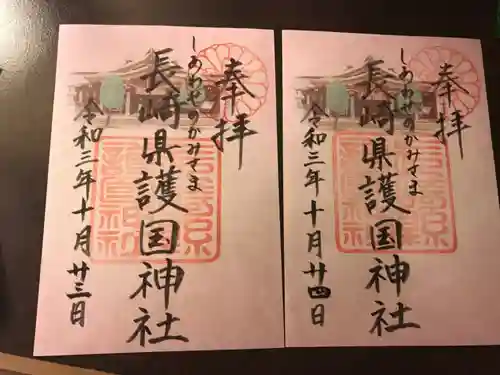 奉拝
しあわせのかみさま
長崎県護国神社
令和三年十月廿三日
奉拝
しあわせのかみさま
長崎県護国神社
令和三年十月廿四日